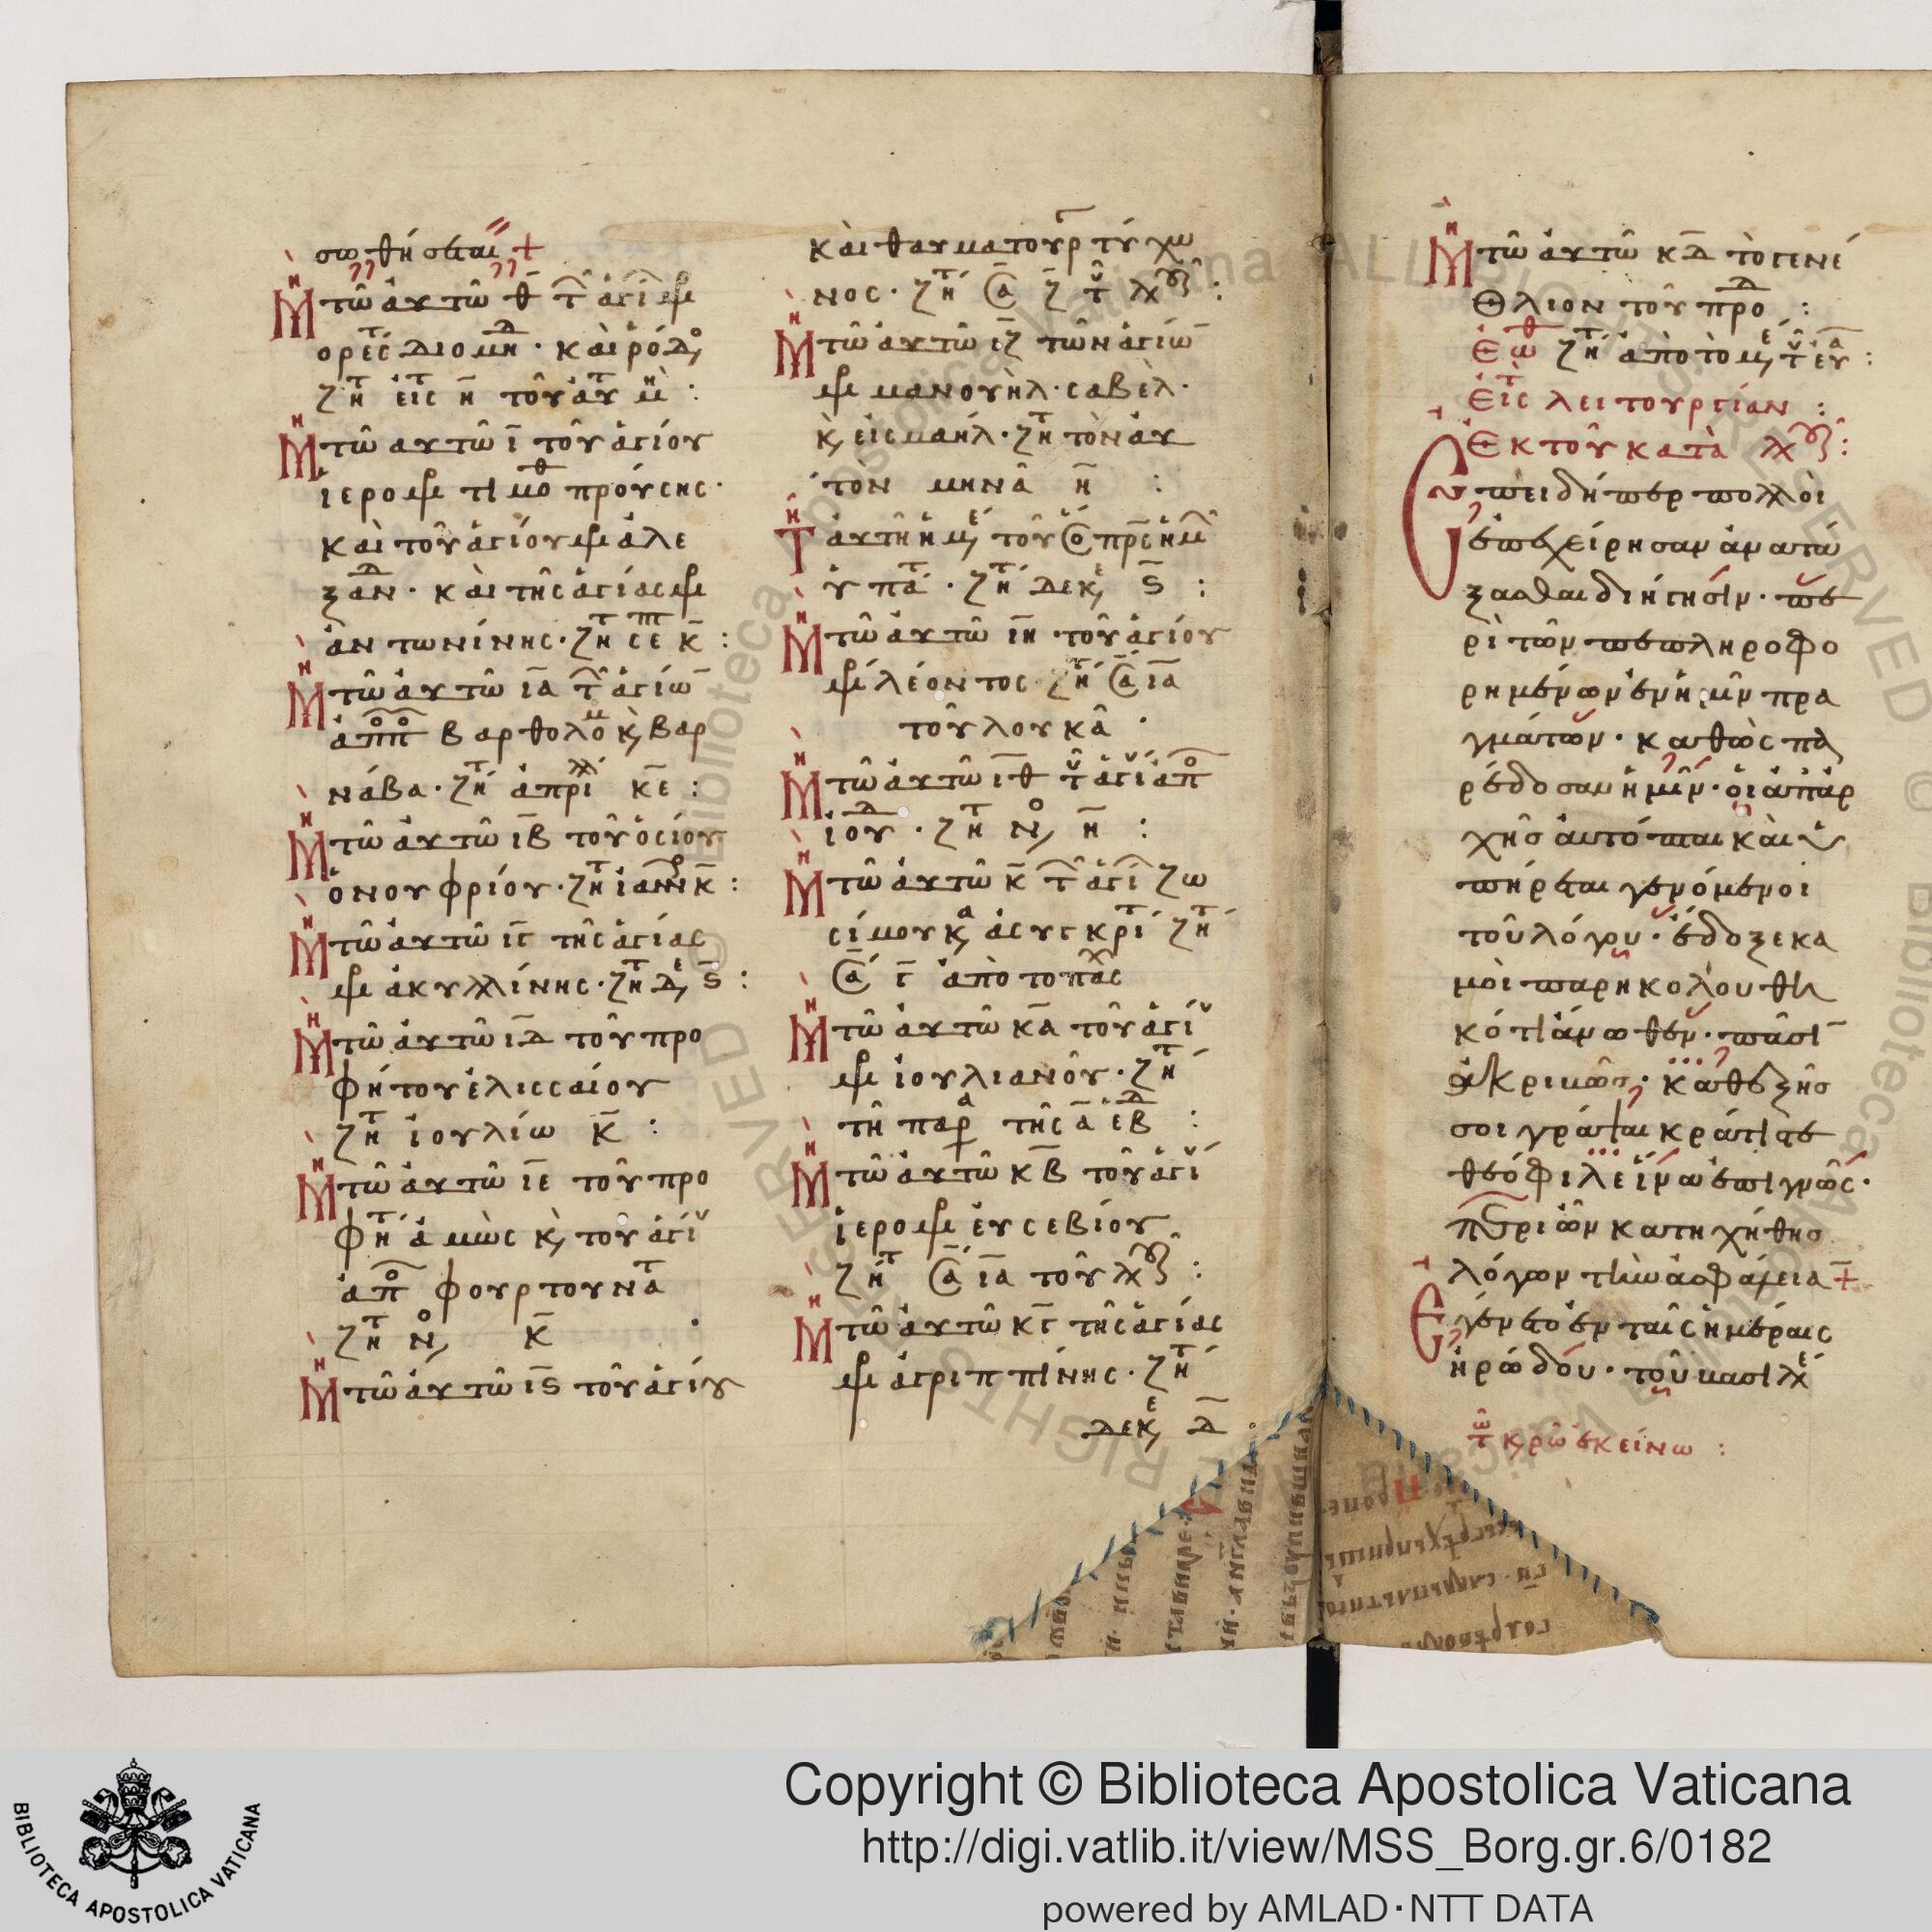 σωθήσεται +
Μη τῶ ἀυτῶ θ τ ἁγι μρ
ορέστ διομηδ · και ρόδο,
ζητ εἰς τ η τοῦ ἀυτ μη :
Μη τῶ αυτῶ ι τοῦ ἁγίου
ἱερομρ τιμοθ προύσης ·
και τοῦ ἁγίου μρ ἀλε
ξανδ · και τῆς ἁγίας μρ
ἀντωνίνης · ζητ σεπτ κ :
Μη τῶ ἀυτῶ ια τ ἁγίω
ἀποπο βαρθολομ κ, βαρ
νάβα · ζητ ἀπριλλ κε :
Μη τῶ ἀυτῶ ιβ τοῦ ὁσίου
ὀνουφρίου · ζητ ἰανν κ :
Μη τῶ ἀυτῶ ιγ τῆς ἁγίας
μρ ἀκυλλίνης · ζητ δε, ς :
Μη τῶ ἀυτῶ ιδ τοῦ προ
φήτου ἐλισσαίου
ζητ ἰουλίω κ :
Μη τῶ ἀυτῶ ιε τοῦ προ
φητ ἀμὼς κ, του ἁγί
ἀπο φουρτουνατ
ζητ νο, κ
Μη τῶ ἀυτῶ ις τοῦ ἁγίου
και θαυματουργ τύχω
νος · ζητ Σα ζ τοῦ λουκ :
Μη τῶ ἀυτῶ ιζ τῶν ἁγίω
μρ μανουὴλ · σαβὲλ ·
κ, εἰσμαήλ · ζητ τὸν ἀυ
τὸν μηνᾶ η :
Τῆ ἀυτῆ ἡμε, τοῦ ὁσ πρς ἡμ
ὑπατ · ζητ δεκε, ς :
Μη τῶ ἀυτῶ ιη · τοῦ ἁγίου
μρ λέοντος ζητ Σα ια
τοῦ λουκᾶ ·
Μη τῶ ἀυτῶ ιθ τοῦ ἁγί ἀπο
ἰούδ · ζητ νο, η :
Μη τῶ ἀυτῶ κ τ ἁγι ζω
σίμου κ, ἀσυγκριτ ζητ
Σα γ ἀπὸ το πασχ
Μη τῶ ἀυτῶ κα τοῦ ἁγί
μρ ἰουλιανοῦ · ζητ
τῆ παρα τῆς α ἑβδ :
Μη τῶ ἀυτῶ κβ τοῦ ἁγί
ἱερομρ ἐυσεβίου
ζητ Σα ια τοῦ λουκ :
Μη τῶ ἀυτῶ κγ τῆς ἁγίας
μρ ἀγριππίνης · ζητ
δεκε, δ :
Μη τῶ ἀυτῶ κδ τὸ γενέ
θλιον τοῦ προδ :
Εωθ ζητ ἀπὸ το με, τοῦ ἐυα :
Εἰς τ λειτουργίαν :
Εκ τοῦ κατὰ λουκ :
Επειδήπερ πολλοὶ
ἐπεχείρησαν ἀνατά
ξασθαι διήγησιν · πε
ρὶ τῶν πεπληροφο
ρημένων ἐν ἡμῖν πρα
γμάτων · καθὼς πα
ρέδοσαν ἡμῖν · οἱ ἀπ' ἀρ
χῆς ἀυτόπται και ὑ
πηρέται γενόμενοι
τοῦ λόγου · ἔδοξε κα
μοὶ παρηκολουθη
κότι ἄνωθεν · πᾶσι
ἀκριβῶς, καθεξῆς
σοι γράψαι κράτιστε
θεόφιλε ἵνα ἐπιγνῶς ·
περὶ ὧν κατηχήθης
λόγων τὴν ἀσφάλεια +
Εγένετο ἐν ταῖς ἡμέραις
ἡρώδου · τοῦ βασιλέ
τ κ, ρῶ ἐκείνω :
Copyright © Biblioteca Apostolica Vaticana
http://digi.vatlib.it/view/MSS_Borg.gr.6/0182
powered by AMLAD·NTT DATA
BIBLIOTECA APOSTOLICA VATICANA